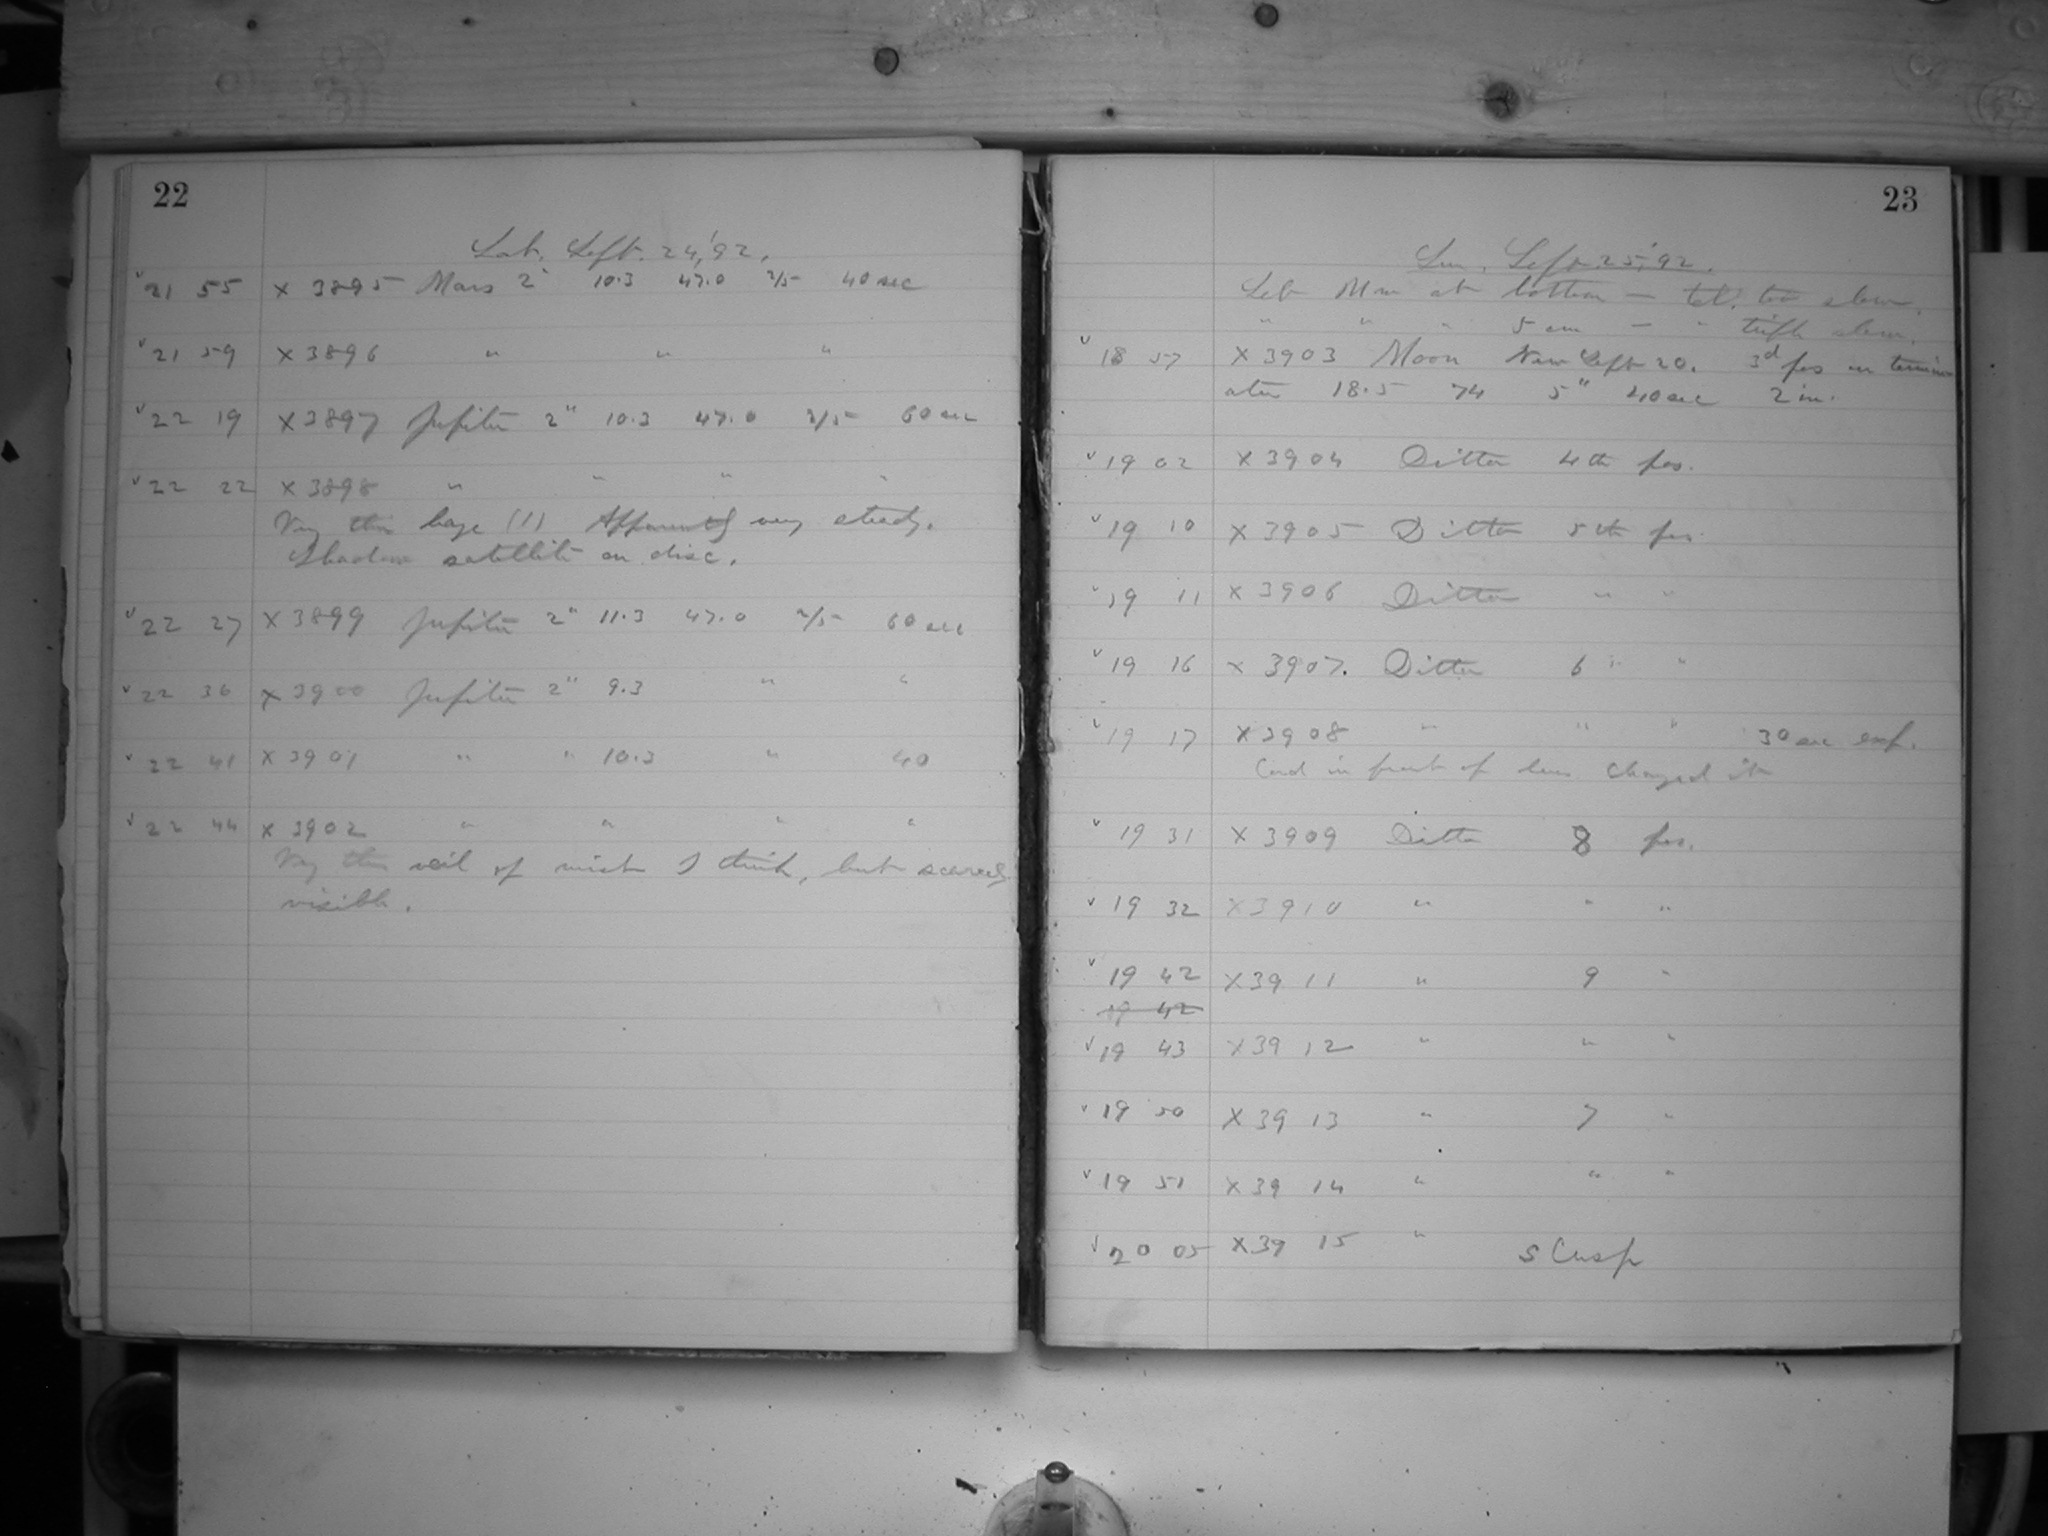 22
Sat. Sept. 24, '92.
v 21 55 X 3895 Mars 2" 10.3 47.0 2/5 40 sec
v 21 59 X 3896 " " "
v 22 19 X 3897 Jupiter 2" 10.3 47.0 2/5 60 sec
v 22 22 X 3898 " " " "
Very thin haze (1) Apparently very steady.
Shadow satellite on disc.
v 22 27 X 3899 Jupiter 2" 11.3 47.0 2/5 60 sec
v 22 36 X 3900 Jupiter 2" 9.3 " "
v 22 41 X 3901 " " 10.3 " 40
v 22 44 X 3902 " " " "
Very thin veil of mist I think, but scarcely
visible.
23
Sun. Sept. 25, '92.
Set at bottom — tel. too slow.
" " " 5 cm — " trifle slow.
v 18 57 X 3903 Moon New Sept 20. 3d pos on termin
ator 18.5 74 5" 40 sec 2 in.
v 19 02 X 3904 Ditto 4th pos.
v 19 10 X 3905 Ditto 5th pos.
v 19 11 X 3906 Ditto " "
v 19 16 X 3907. Ditto 6 " "
v 19 17 X 3908 " " " 30 sec exp.
Card in front of lens changed it
v 19 31 X 3909 Ditto 8 pos.
v 19 32 X 3910 " " "
v 19 42 X 3911 " 9 "
19 42
v 19 43 X 3912 " " "
v 19 50 X 3913 " 7 "
v 19 51 X 3914 " " "
v 20 05 X 3915 " S Cusp